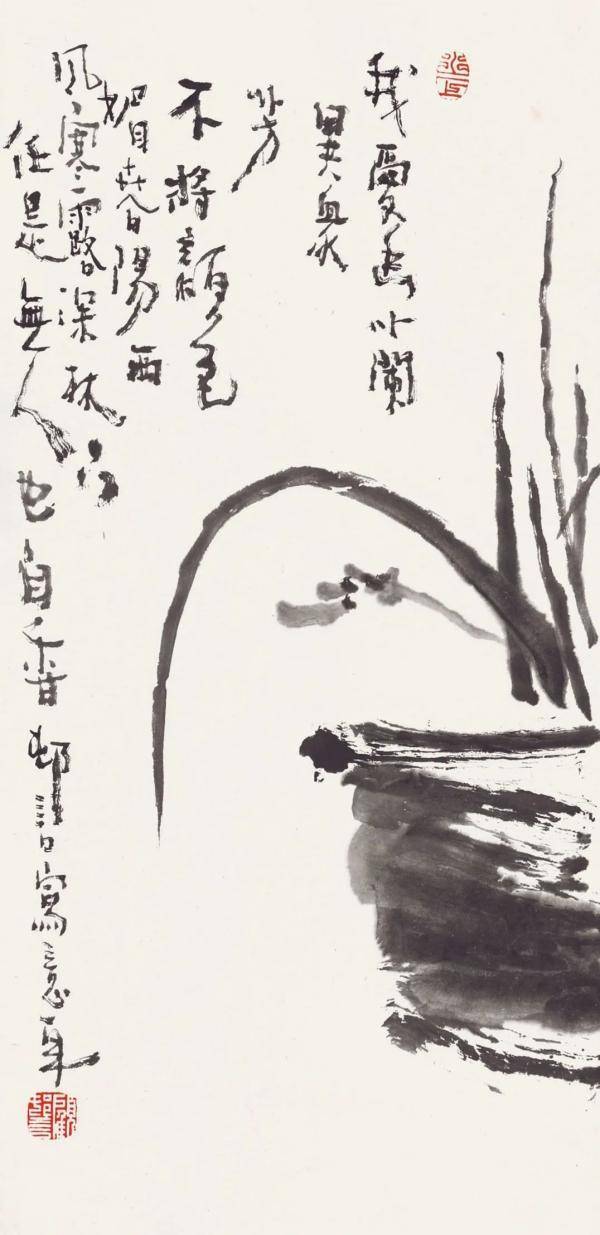 我愛幽蘭
異眾
芳
不將顏色
媚春陽西
風寒露深林下
任是無人也自香 邨言寫意